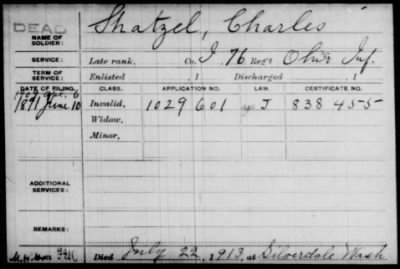 DEAD
Shatzel, Charles
NAME OF SOLDIER:
SERVICE: Late rank, Co. I, 76 Reg't Ohio Inf.
TERM OF SERVICE: Enlisted , 1 Discharged , 1
DATE OF FILING. CLASS. APPLICATION NO. LAW. CERTIFICATE NO.
1891 June 10 Invalid, 1029601 J 838455
Widow,
Minor,
ADDITIONAL SERVICES:
REMARKS:
Died July 22, 1913, at Silverdale Wash